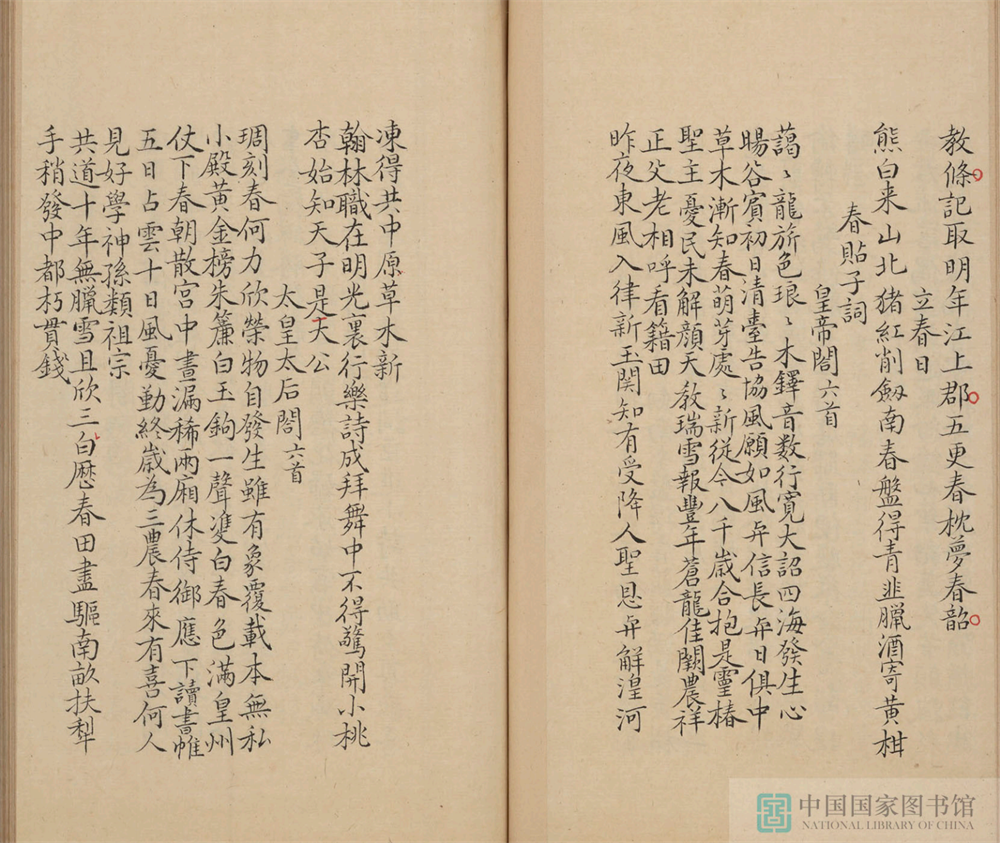 教條記取明年江上郡五更春枕夢春韶
立春日
熊白来山北猪紅削劔南春盤得青韭臘酒寄黄柑
春貼子詞
皇帝閤六首
藹〻龍旂色琅〻木鐸音数行寛大詔四海發生心
暘谷賓初日清臺告協風願如風有信長與日俱中
草木漸知春萌芽處〻新從今八千歳合抱是靈椿
聖主憂民未解顏天教瑞雪報豐年蒼龍佳闕農祥
正父老相呼看籍田
昨夜東風入律新玉関知有受降人聖恩與解湟河
凍得共中原草木新
翰林職在明光裏行樂詩成拜舞中不得驚開小桃
杏始知天子是天公
太皇太后閤六首
琱刻春何力欣榮物自發生雖有象覆載本無私
小殿黄金榜朱簾白玉鉤一聲雙白春色滿皇州
仗下春朝散宮中晝漏稀兩廂休侍御應下讀書帷
五日占雲十日風憂勤終歳為三農春來有喜何人
見好學神孫類祖宗
共道十年無臘雪且欣三白壓春田盡驅南畝扶犁
手稍發中都朽貫錢
中国国家图书馆
NATIONAL LIBRARY OF CHINA